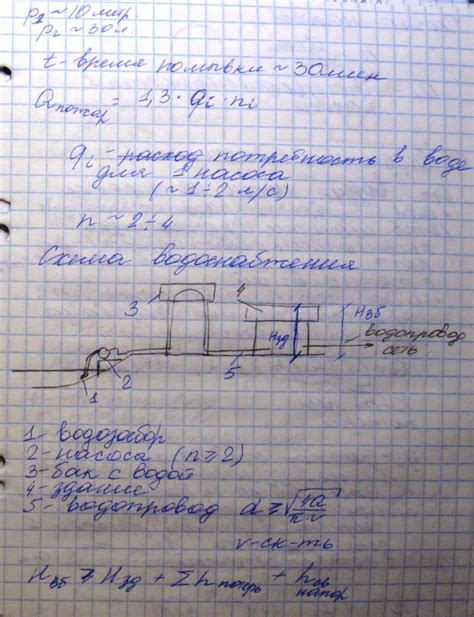 p₁ ~ 10 литр
p₂ ~ 30 л
t - время помывки ~ 30 мин
Qпожар = 1,3 · qi · ni
qi - расход потребность в воде
для 1 насоса
(~ 1÷2 л/с)
n ~ 2÷4
Схема водоснабжения
3
4
Hзд
Hвб
водопровод
сеть
1
2
5
1- водозабор
2- насоса (n ≥ 2)
3- бак с водой
4- здание
5- водопровод d ≥ √(4Q/π·v)
v-ск-ть
Hвб ≥ Hзд + Σhпотерь + hсв напор